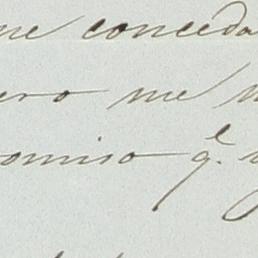 me conceda
ero me
omiso q.e